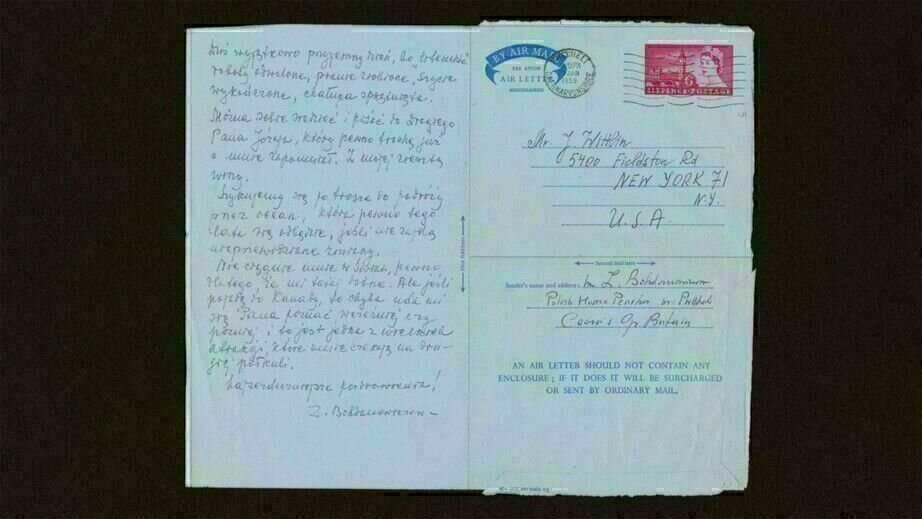 Dziś wyjątkowo przyjemny dzień, bo
roboty odwalone, pranie zrobione, szycie
wykończone, chałupa sprzątnięta.
Można sobie siedzieć i pisać do Drogiego
Pana Józefa, który pewno trochę już
o mnie zapomniał. Z mojej zresztą
winy.
Szykujemy się po trosze do podróży
przez ocean, która pewno tego
lata się odbędzie, jeśli nie zajdą
nieprzewidziane zmiany.
Nie ciągnie mnie w świat, pewno
dlatego, że mi tutaj dobrze. Ale jeśli
pojadę do Kanady, to chyba uda mi
się Pana poznać wcześniej czy
później i to jest jedna z wielkich
atrakcji, które mnie czekają na dru-
giej półkuli.
Najserdeczniejsze pozdrowienia!
Z. Bohdanowiczowa
BY AIR MAIL
PAR AVION
AIR LETTER
AEROGRAMME
PM
JAN
1959
CAERNARVONSHIRE
SIXPENCE · POSTAGE
5
Mr J. Wittlin
5400 Fieldston Rd
NEW YORK 71
N.Y.
U.S.A.
First fold here
Second fold here
Sender's name and address:
Polish Home Penrhos nr. Pwllheli
Great Britain
AN AIR LETTER SHOULD NOT CONTAIN ANY
ENCLOSURE; IF IT DOES IT WILL BE SURCHARGED
OR SENT BY ORDINARY MAIL.